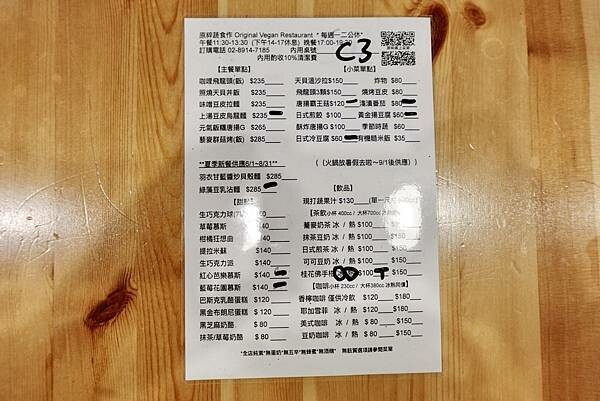 原粹蔬食作 Original Vegan Restaurant * 每週一二公休*
午餐11:30-13:30 (下午14-17休息) 晚餐17:00-19:30
訂購電話 02-8914-7185 內用桌號 C3
內用酌收10%清潔費
【主餐單點】 【小菜單點】
咖哩飛龍頭(飯) $235 天貝溫沙拉$150 炸物 $80
照燒天貝丼飯 $235 飛龍頭3顆$150 燒烤豆皮 $80
味噌豆皮拉麵 $235 唐揚霸王菇$120 淺漬番茄 $80
上湯豆皮烏龍麵 $235 日式煎餃 $100 黃金揚豆腐 $60
元氣飯糰唐揚G $265 酥炸唐揚G $100 季節時蔬 $60
藜麥群菇烤(飯) $285 日式冷豆腐 $60 有機糙米飯 $35
**夏季新餐供應6/1~8/31** ((火鍋放暑假去啦~9/1後供應))
羽衣甘藍醬炒貝殼麵 $285
綠藻豆乳沾麵 $285 【飲品】
【甜點】 現打蔬果汁 $130 (單一尺寸
生巧克力球 【茶飲小杯 400cc / 大杯700cc
草莓慕斯 $140 蕎麥奶茶 冰 / 熱 $100
柑橘狂想曲 $140 抹茶豆奶 冰 / 熱 $100
提拉米蘇 $140 日式煎茶 冰 / 熱 $100
生巧克力派 $140 可可豆奶 冰 / 熱 $100 $150
紅心芭樂慕斯 $140 桂花佛手柑 $100 T $150
藍莓花園慕斯 $140 【咖啡小杯 230cc / 大杯380cc 冰熱同價】
巴斯克乳酪蛋糕 $120 香檸咖啡 僅供冷飲 $120 $180
黑金布朗尼蛋糕 $120 耶加雪菲 冰 / 熱 $120 $180
黑芝麻奶酪 $ 80 美式咖啡 冰 / 熱 $ 80 $150
抹茶/草莓奶酪 $ 80 豆奶咖啡 冰 / 熱 $ 80 $150
*全店純素*無蛋奶*無五辛*無蜂蜜*無酒精* 無麩質選項請參閱菜單